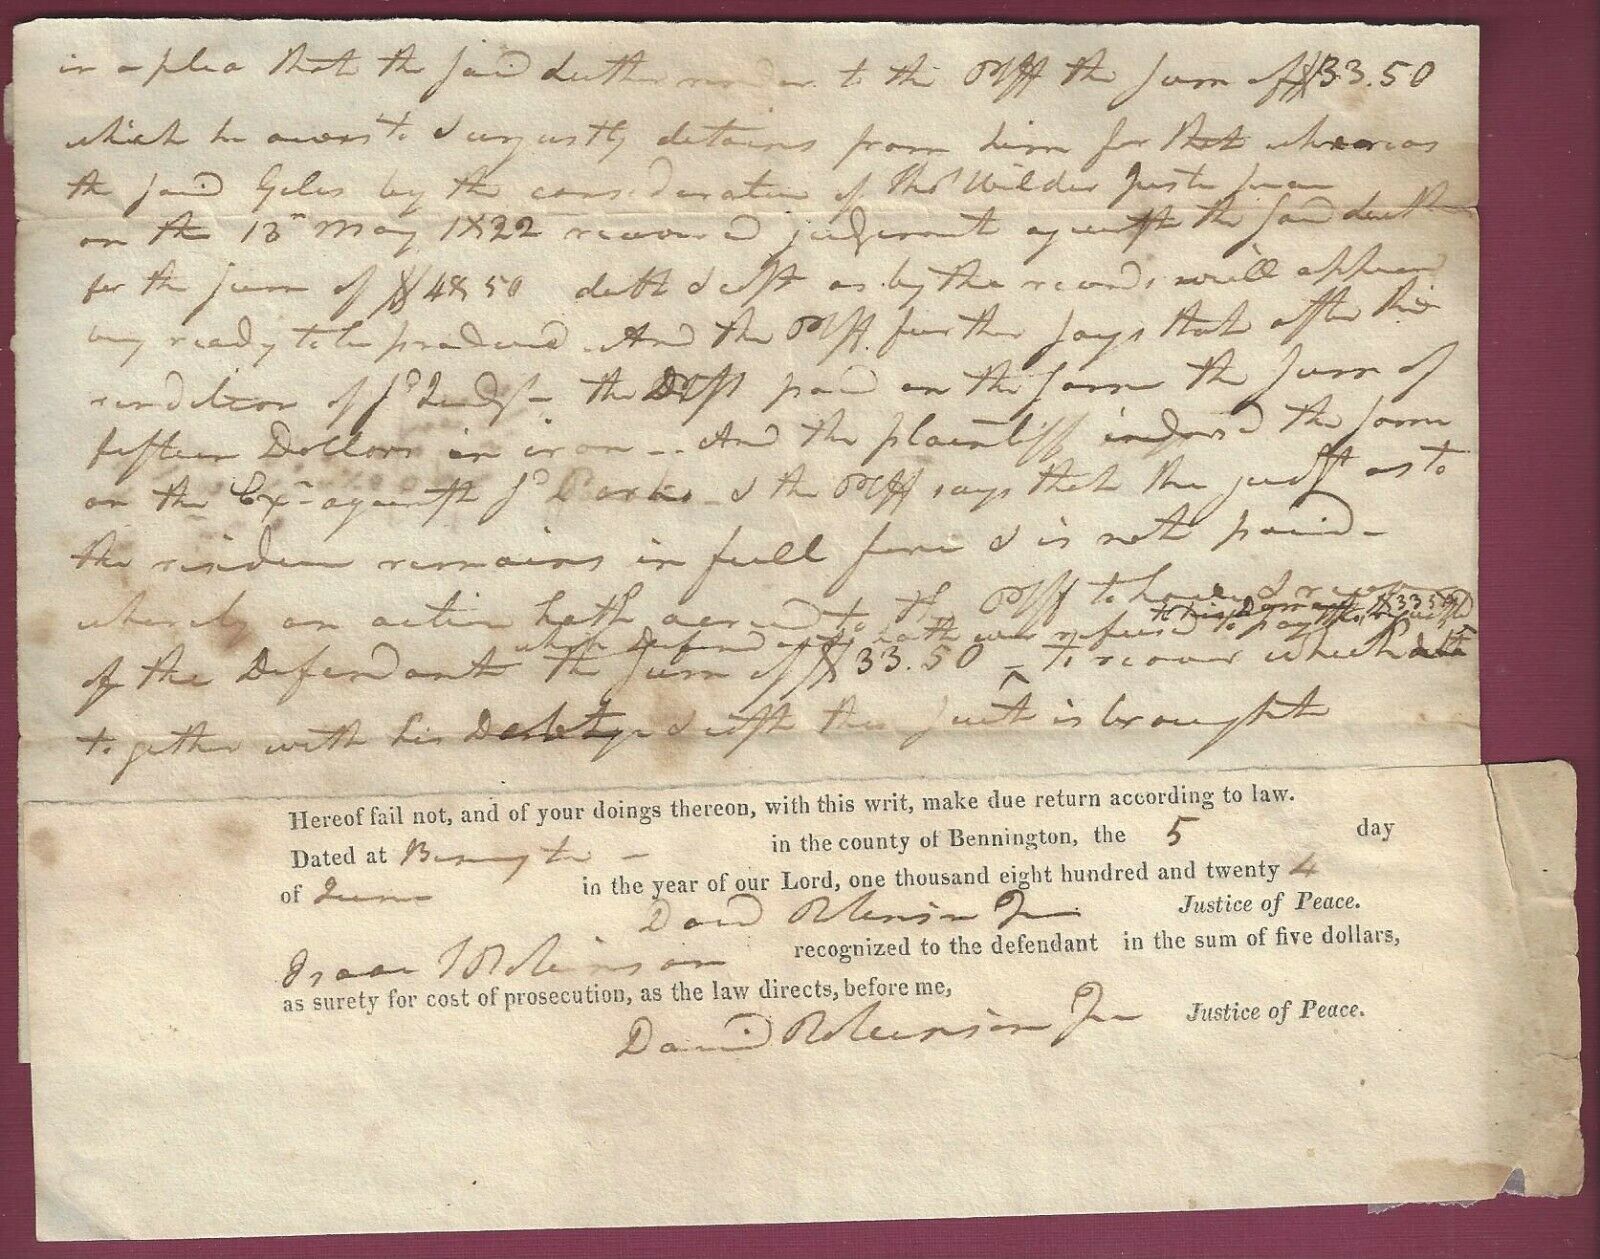 in a plea that the said Luther render to the Plff the sum of $33.50
which he owes to & unjustly detains from him for that whereas
the said Giles by the consideration of Tho' Wilder Justs
on the 13 May 1822 recovered judgement against the said Luther
for the sum of $48.50 debt & cost as by the records will appear
ready to be produced. And the Plff. further says that after the
rendition of sd Judgt the Deft paid on the same the sum of
fifteen Dollars in iron -. And the plaintiff indorsed the same
on the Exn against sd Parks - & the Plff says that the judgt as to
the residue remains in full force & is not paid -
whereby an action hath accrued to the Plff to have & recover
which Defendant hath ever refused to pay tho requested
of the Defendant the sum of $33.50 - to recover which debt
together with his & cost this suit is brought
Hereof fail not, and of your doings thereon, with this writ, make due return according to law.
Dated at Bennington - in the county of Bennington, the 5 day
of June in the year of our Lord, one thousand eight hundred and twenty 4
David Robinson Jr Justice of Peace.
Isaac T Robinson recognized to the defendant in the sum of five dollars,
as surety for cost of prosecution, as the law directs, before me,
David Robinson Jr Justice of Peace.